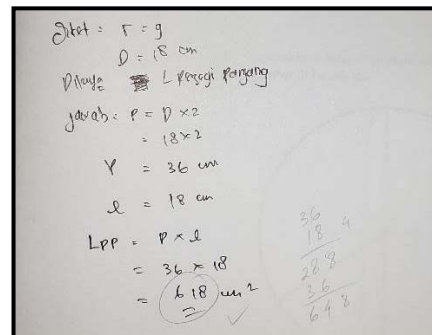 Diket = r = 9
D = 18 cm
Ditanya = L persegi panjang
Jawab = P = D × 2
= 18 × 2
P = 36 cm
l = 18 cm
LPP = P × l
= 36 × 18
= 618 cm²
36
18
288
36
648